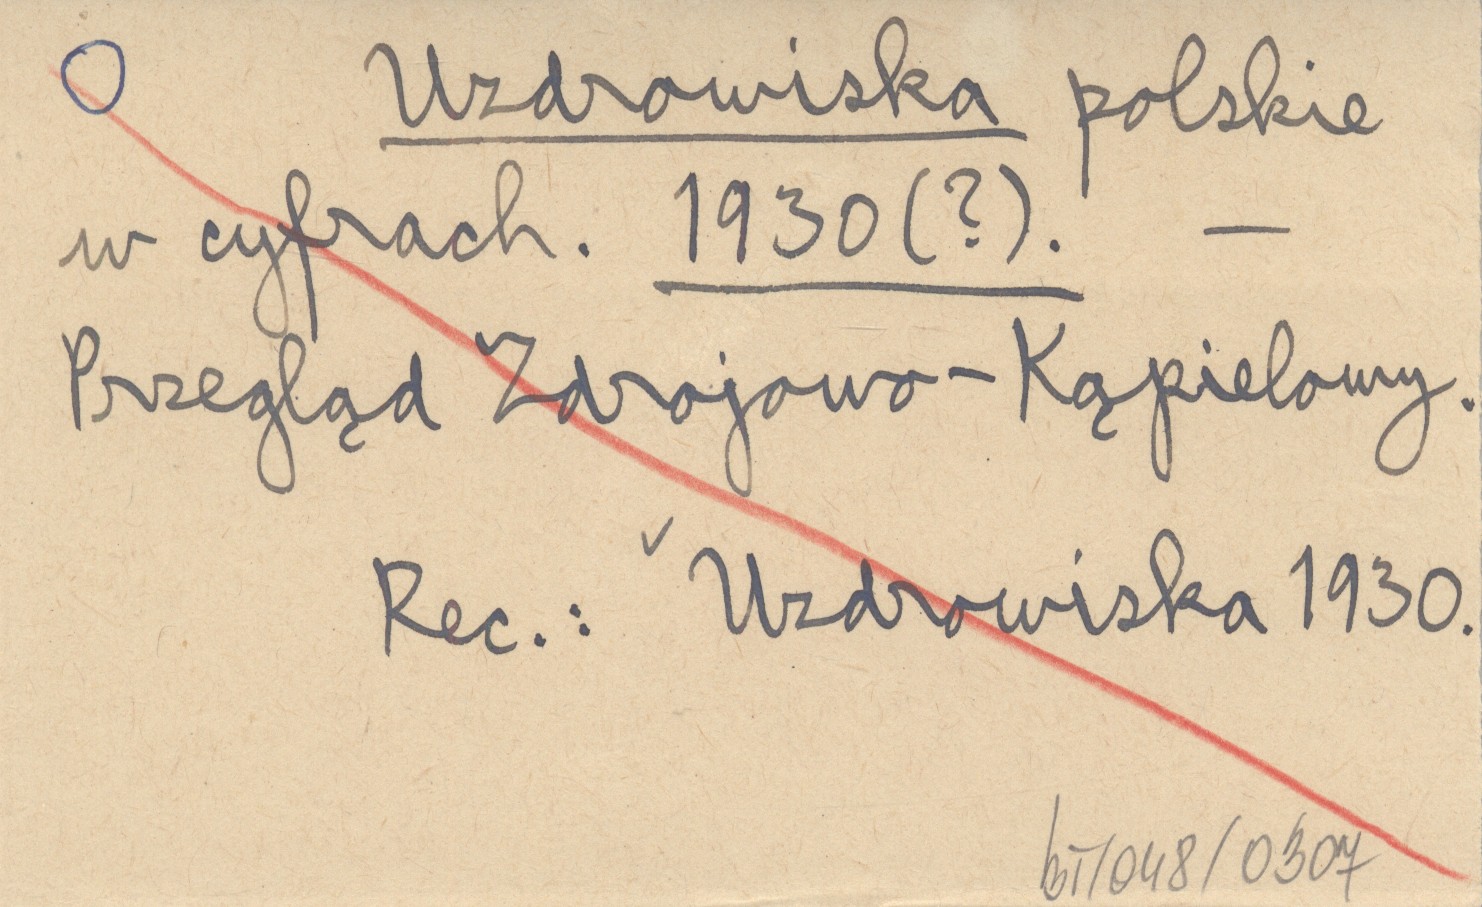 Uzdrowiska polskie
w cyfrach. 1930 (?). —
Przegląd Zdrojowo-Kąpielowy.
Rec.: Uzdrowiska 1930.
bT/048/0307